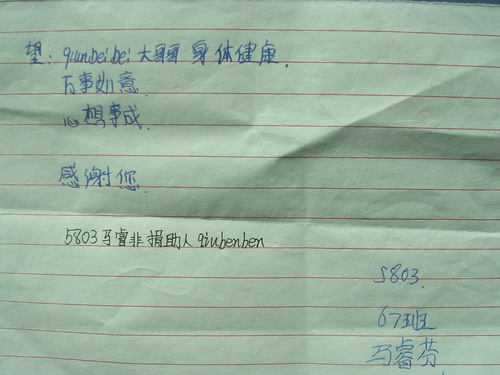 望：qiunbeibei大哥哥 身体健康.
万事如意.
心想事成.
感谢您.
5803马睿非 捐助人 qiubenben
5803.
67班
马睿芬